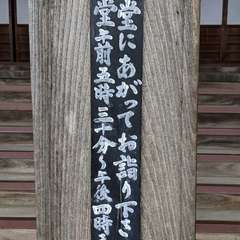 堂にあがってお詣り下さ
堂午前五時三十分〜午後四時